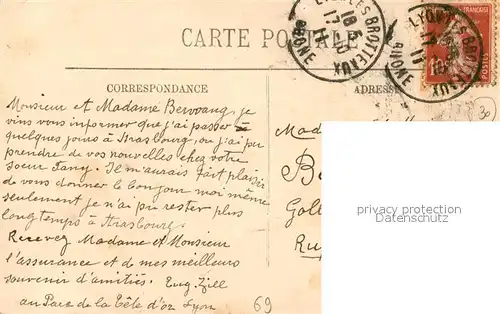 CARTE POSTALE
LYON-LES-BROTTEAUX
RHONE
LYON-LES-BROTTEAUX
RHONE
POSTES
CORRESPONDANCE
ADRESSE
Monsieur et Madame je
viens vous informer que j'ai passer
quelques jours à Strasbourg, ou j'ai pu
prendre de vos nouvelles chez votre
soeur Fany. Il m'aurais fait plaisir
de vous donner le bonjour moi même
seulement je n'ai pu rester plus
longtemps à Strasbourg.
Recevez Madame et Monsieur
l'assurance et de mes meilleurs
souvenir d'amitiés. Eug. Zill
au Parc de la Tête d'or Lyon
69
30
privacy protection
Datenschutz